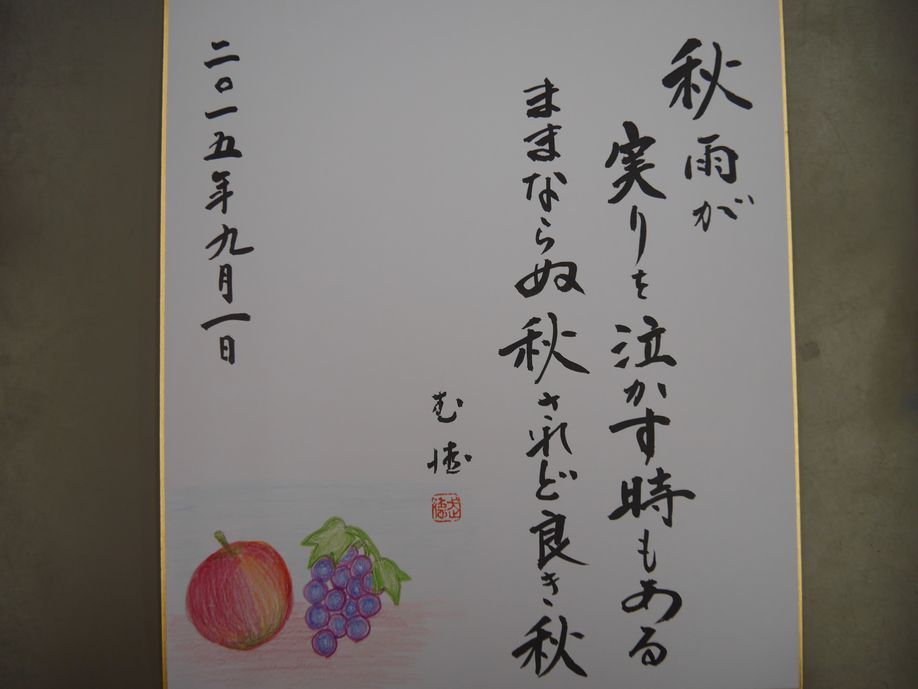 秋雨が
実りを泣かす時もある
ままならぬ秋されど良き秋
二〇一五年九月一日